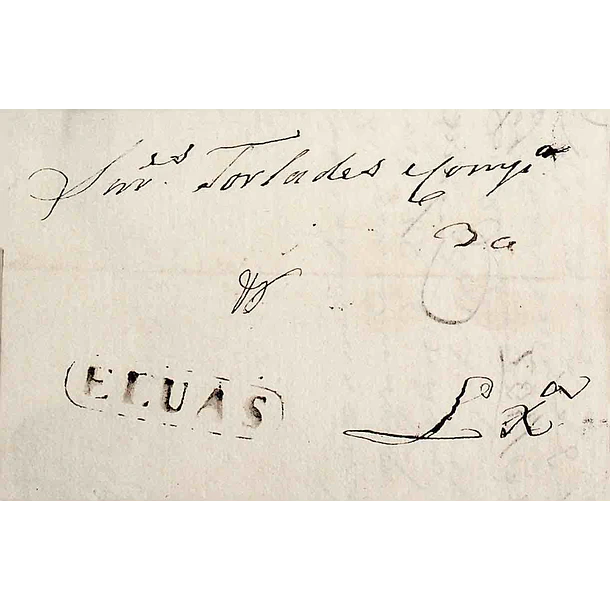 Snr.es Torlades e Comp.a
ELUAS
Lx.a